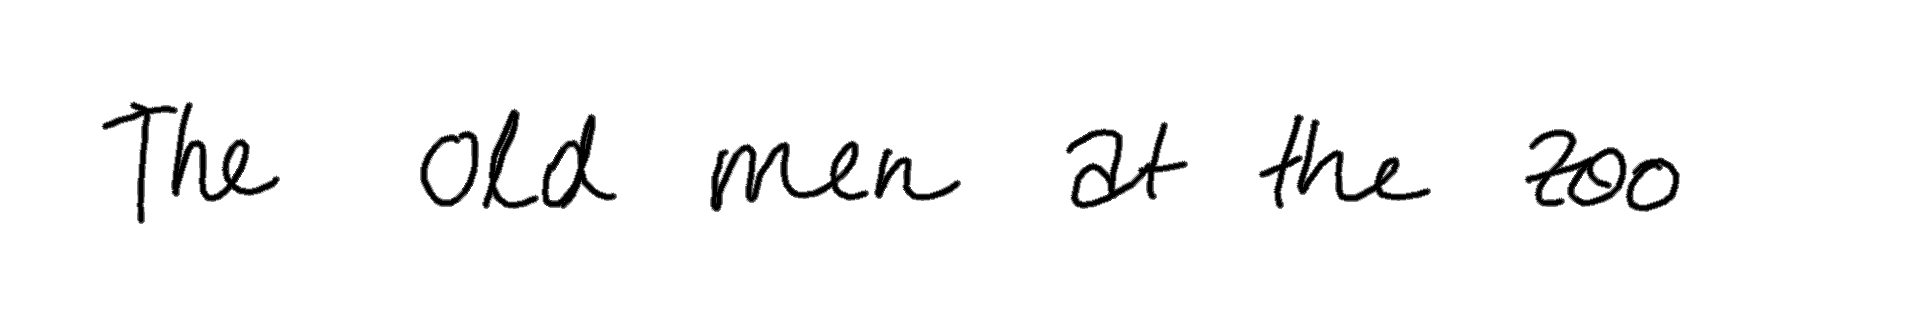 The old men at the zoo